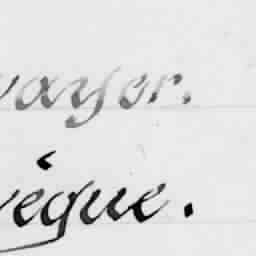 vayer.
vêque.